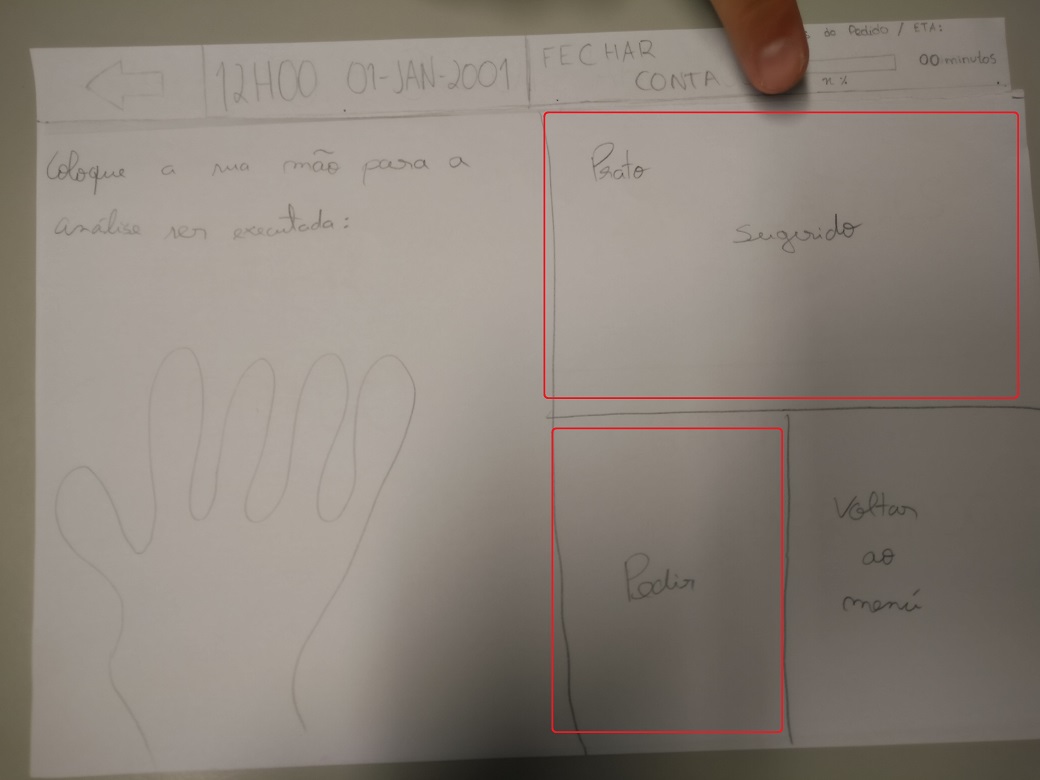 12H00 01-JAN-2001
FECHAR
CONTA
do Pedido / ETA:
00 minutos
n %
Coloque a sua mão para a
análise ser executada:
Prato
Sugerido
Pedir
Voltar
ao
menú